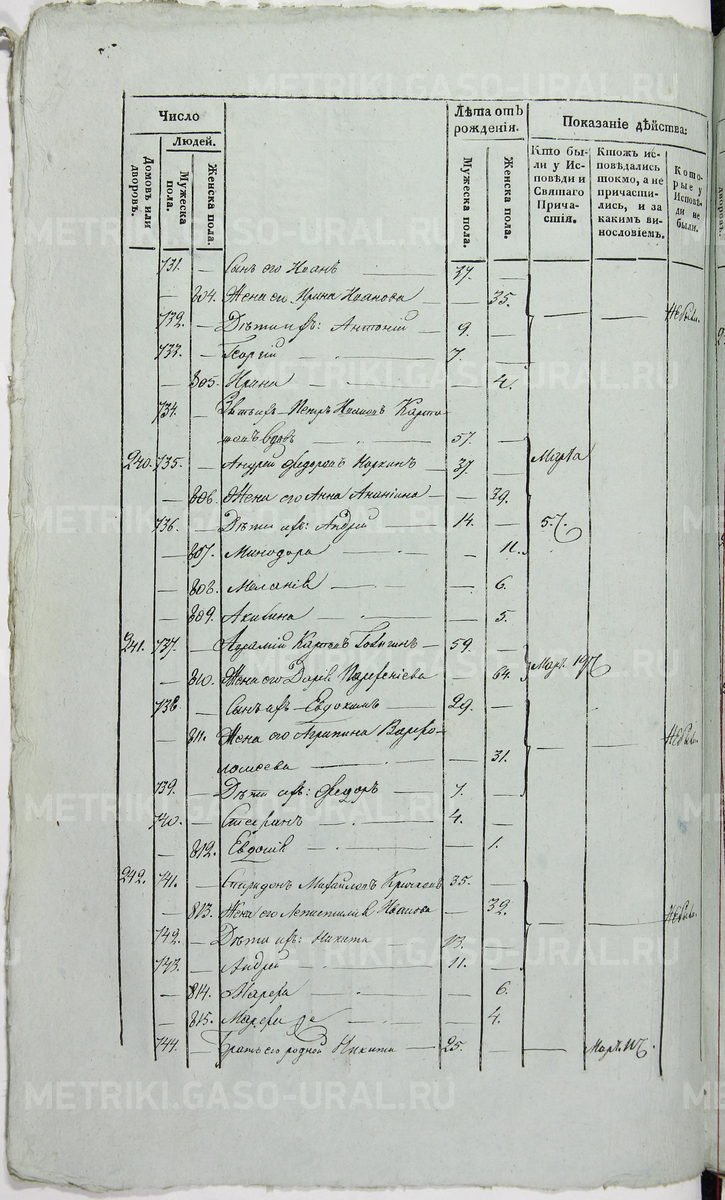 METRIKI.GASO-URAL.RU
Число
Людей.
Домовъ или дворовъ.
Мужеска пола.
Женска пола.
Лѣта отъ рожденія.
Мужеска пола.
Женска пола.
Показаніе дѣйства:
Кто были у Исповѣди и Святаго Причастія.
Ктожъ исповѣдались токмо, а не причастились, и за какимъ винословіемъ.
Которые у Исповѣди не были.
731. — Сынъ его Иоанъ 37. —
— 804. Жена его Ирина Иванова — 35.
732. — Дѣти ихъ: Антоній 9. — не были
733. — Георгій 7. —
— 805. Ирина — 4.
734. — Зять ихъ Петръ
вдовъ 57. —
240. 735. — Андрей Ѳедоровъ 37. — Марта
— 806. Жена его Анна Ананіина — 39.
736. — Дѣти ихъ: Андрей 14. — 5.
— 807. Минодора — 11.
— 808. Меланія — 6.
— 809. Акилина — 5.
241. 737. — Карповъ 59. —
— 810. Жена его Дарія — 64. Мар. 19
738. — Сынъ ихъ Евдокимъ 29. —
— 811. Жена его Агрипина Варфо-
ломеева — 31. не были
739. — Дѣти ихъ: Ѳедоръ 7. —
740. — Стефанъ 4. —
— 812. Евдокія — 1.
242. 741. — Спиридонъ Михайловъ 35. —
— 813. Жена его Иванова — 32. не были
742. — Дѣти ихъ: Никита 13. —
743. — Андрей 11. —
— 814. Марфа — 6.
— 815. Марфа же — 4.
744. — Братъ его родной Никита 25. — Мар.